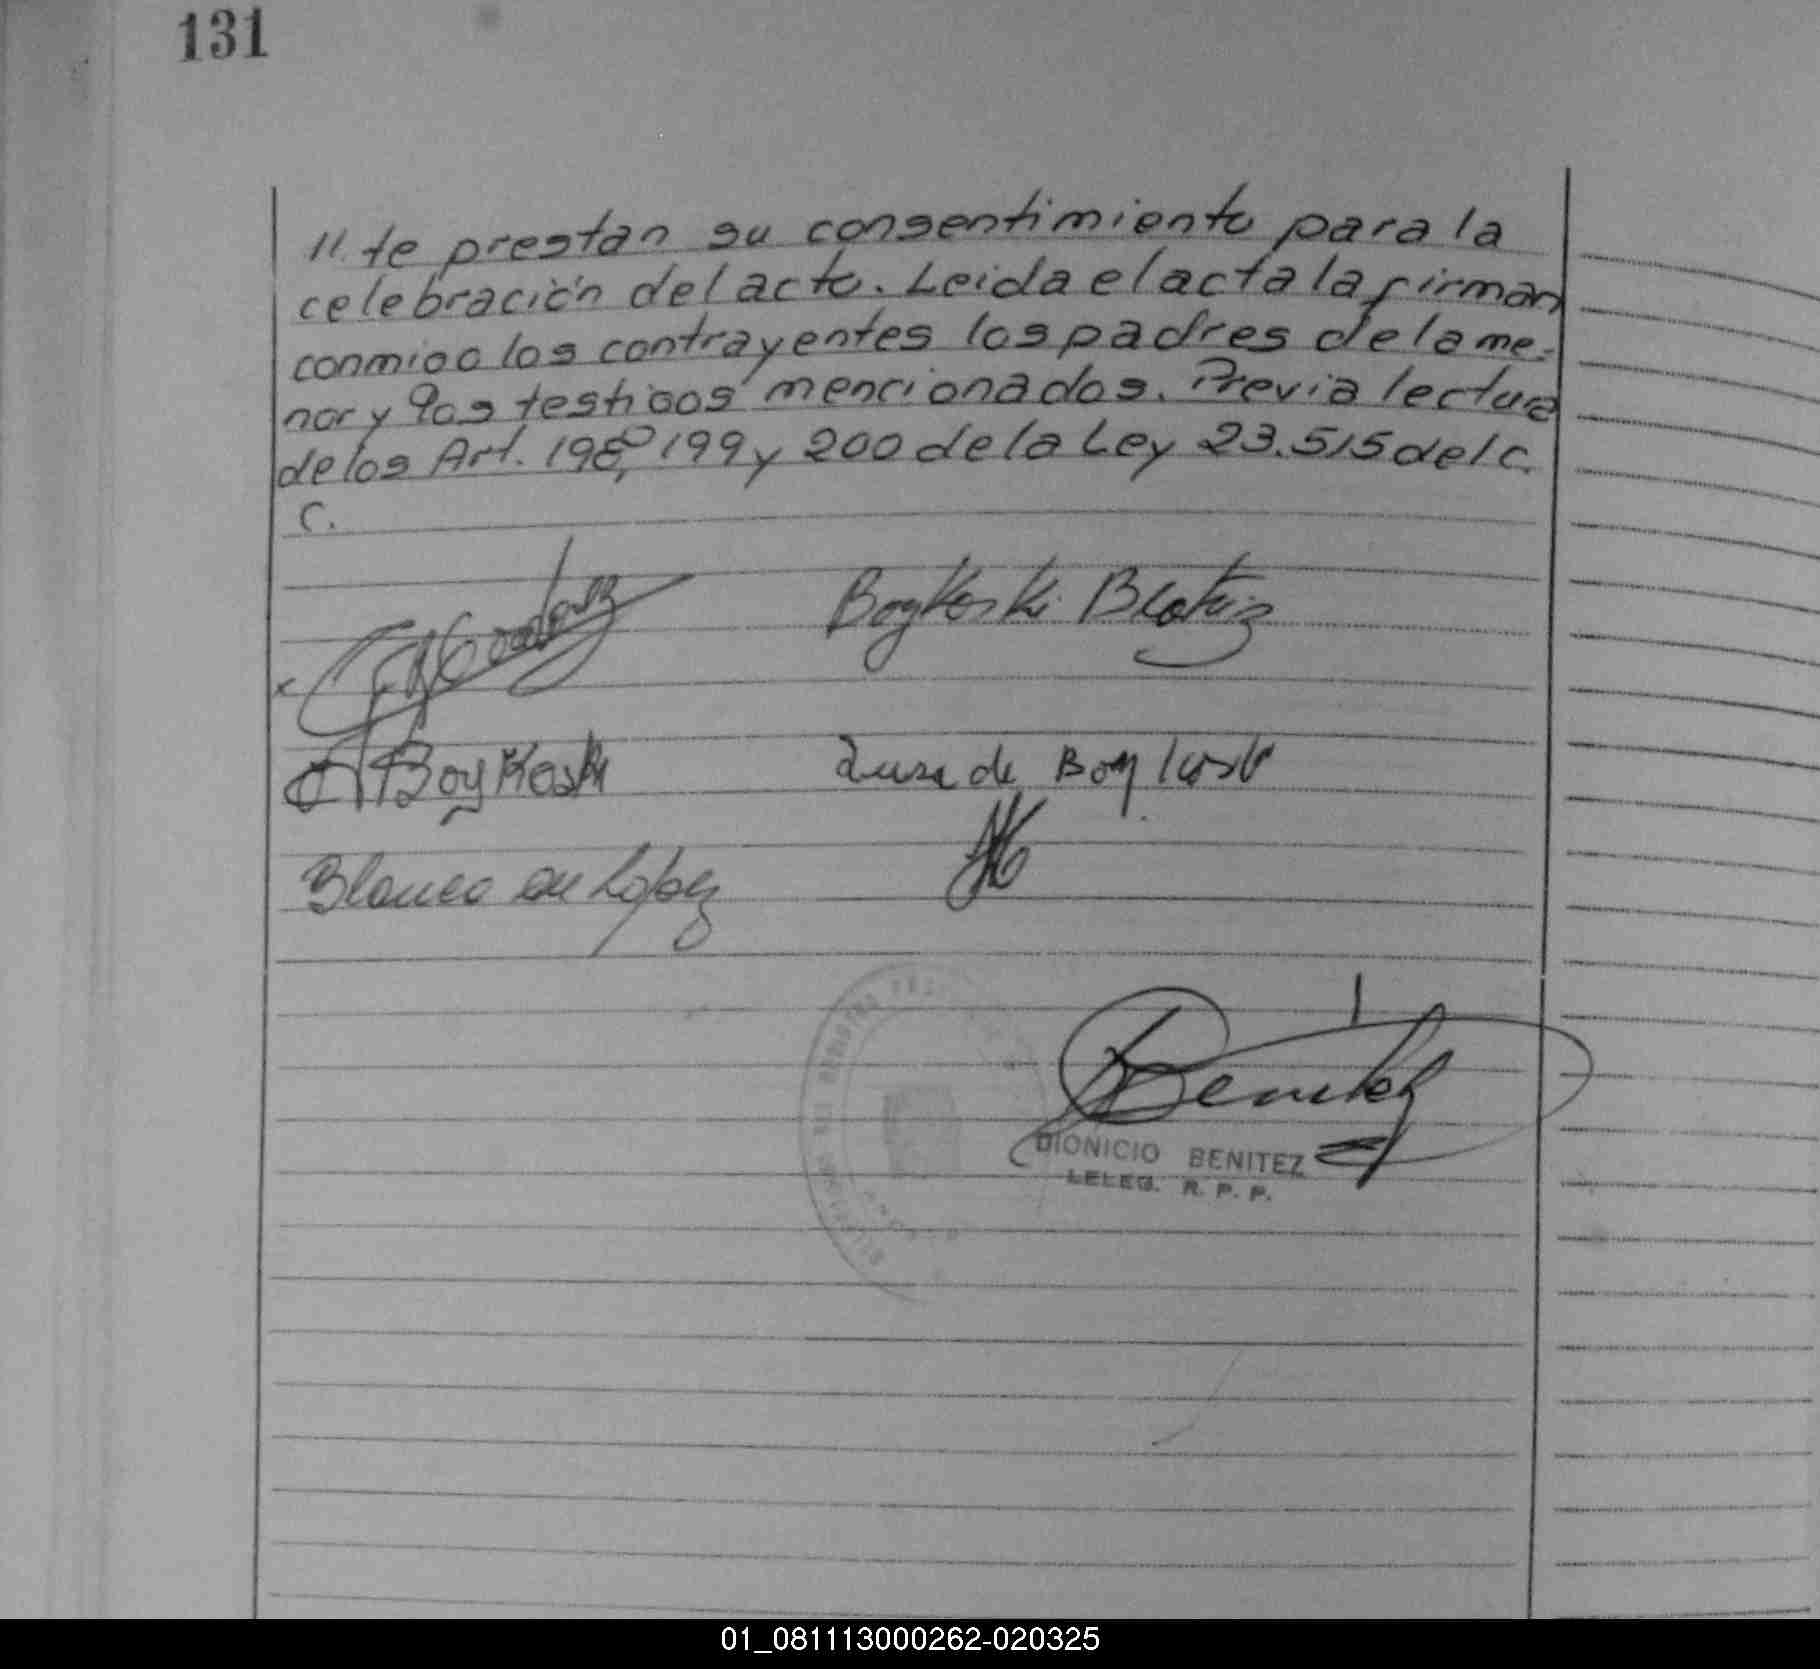 131
11. te prestan su consentimiento para la
celebración del acto. Leida el acta la firman
conmigo los contrayentes los padres de la me-
nor y los testigos mencionados. Previa lectura
de los Art. 198, 199 y 200 de la Ley 23.515 del C.
C.
Boykoski Beatriz
Boykoski
Luisa de Boykoski
Blanca de Lopez
Benitez
DIONICIO BENITEZ
DELEG. R. P. P.
01_081113000262-020325